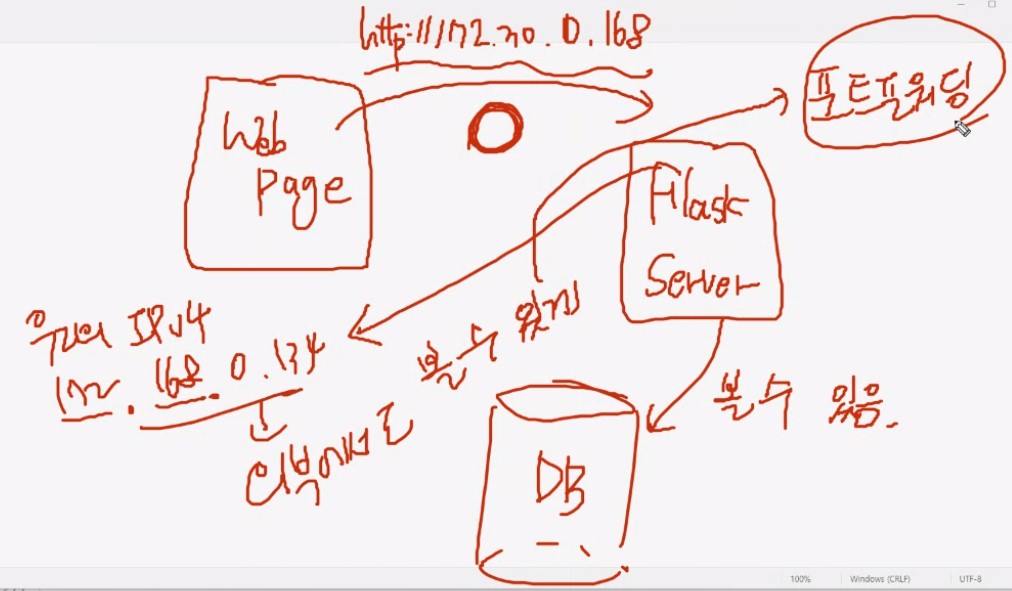 http://172.30.0.168
포트폴워딩
Web
Page
Flask
Server
우리의 IPv4
172.168.0.134
외부에서도
볼 수 있게
볼 수 있음.
DB
100%
Windows (CRLF)
UTF-8